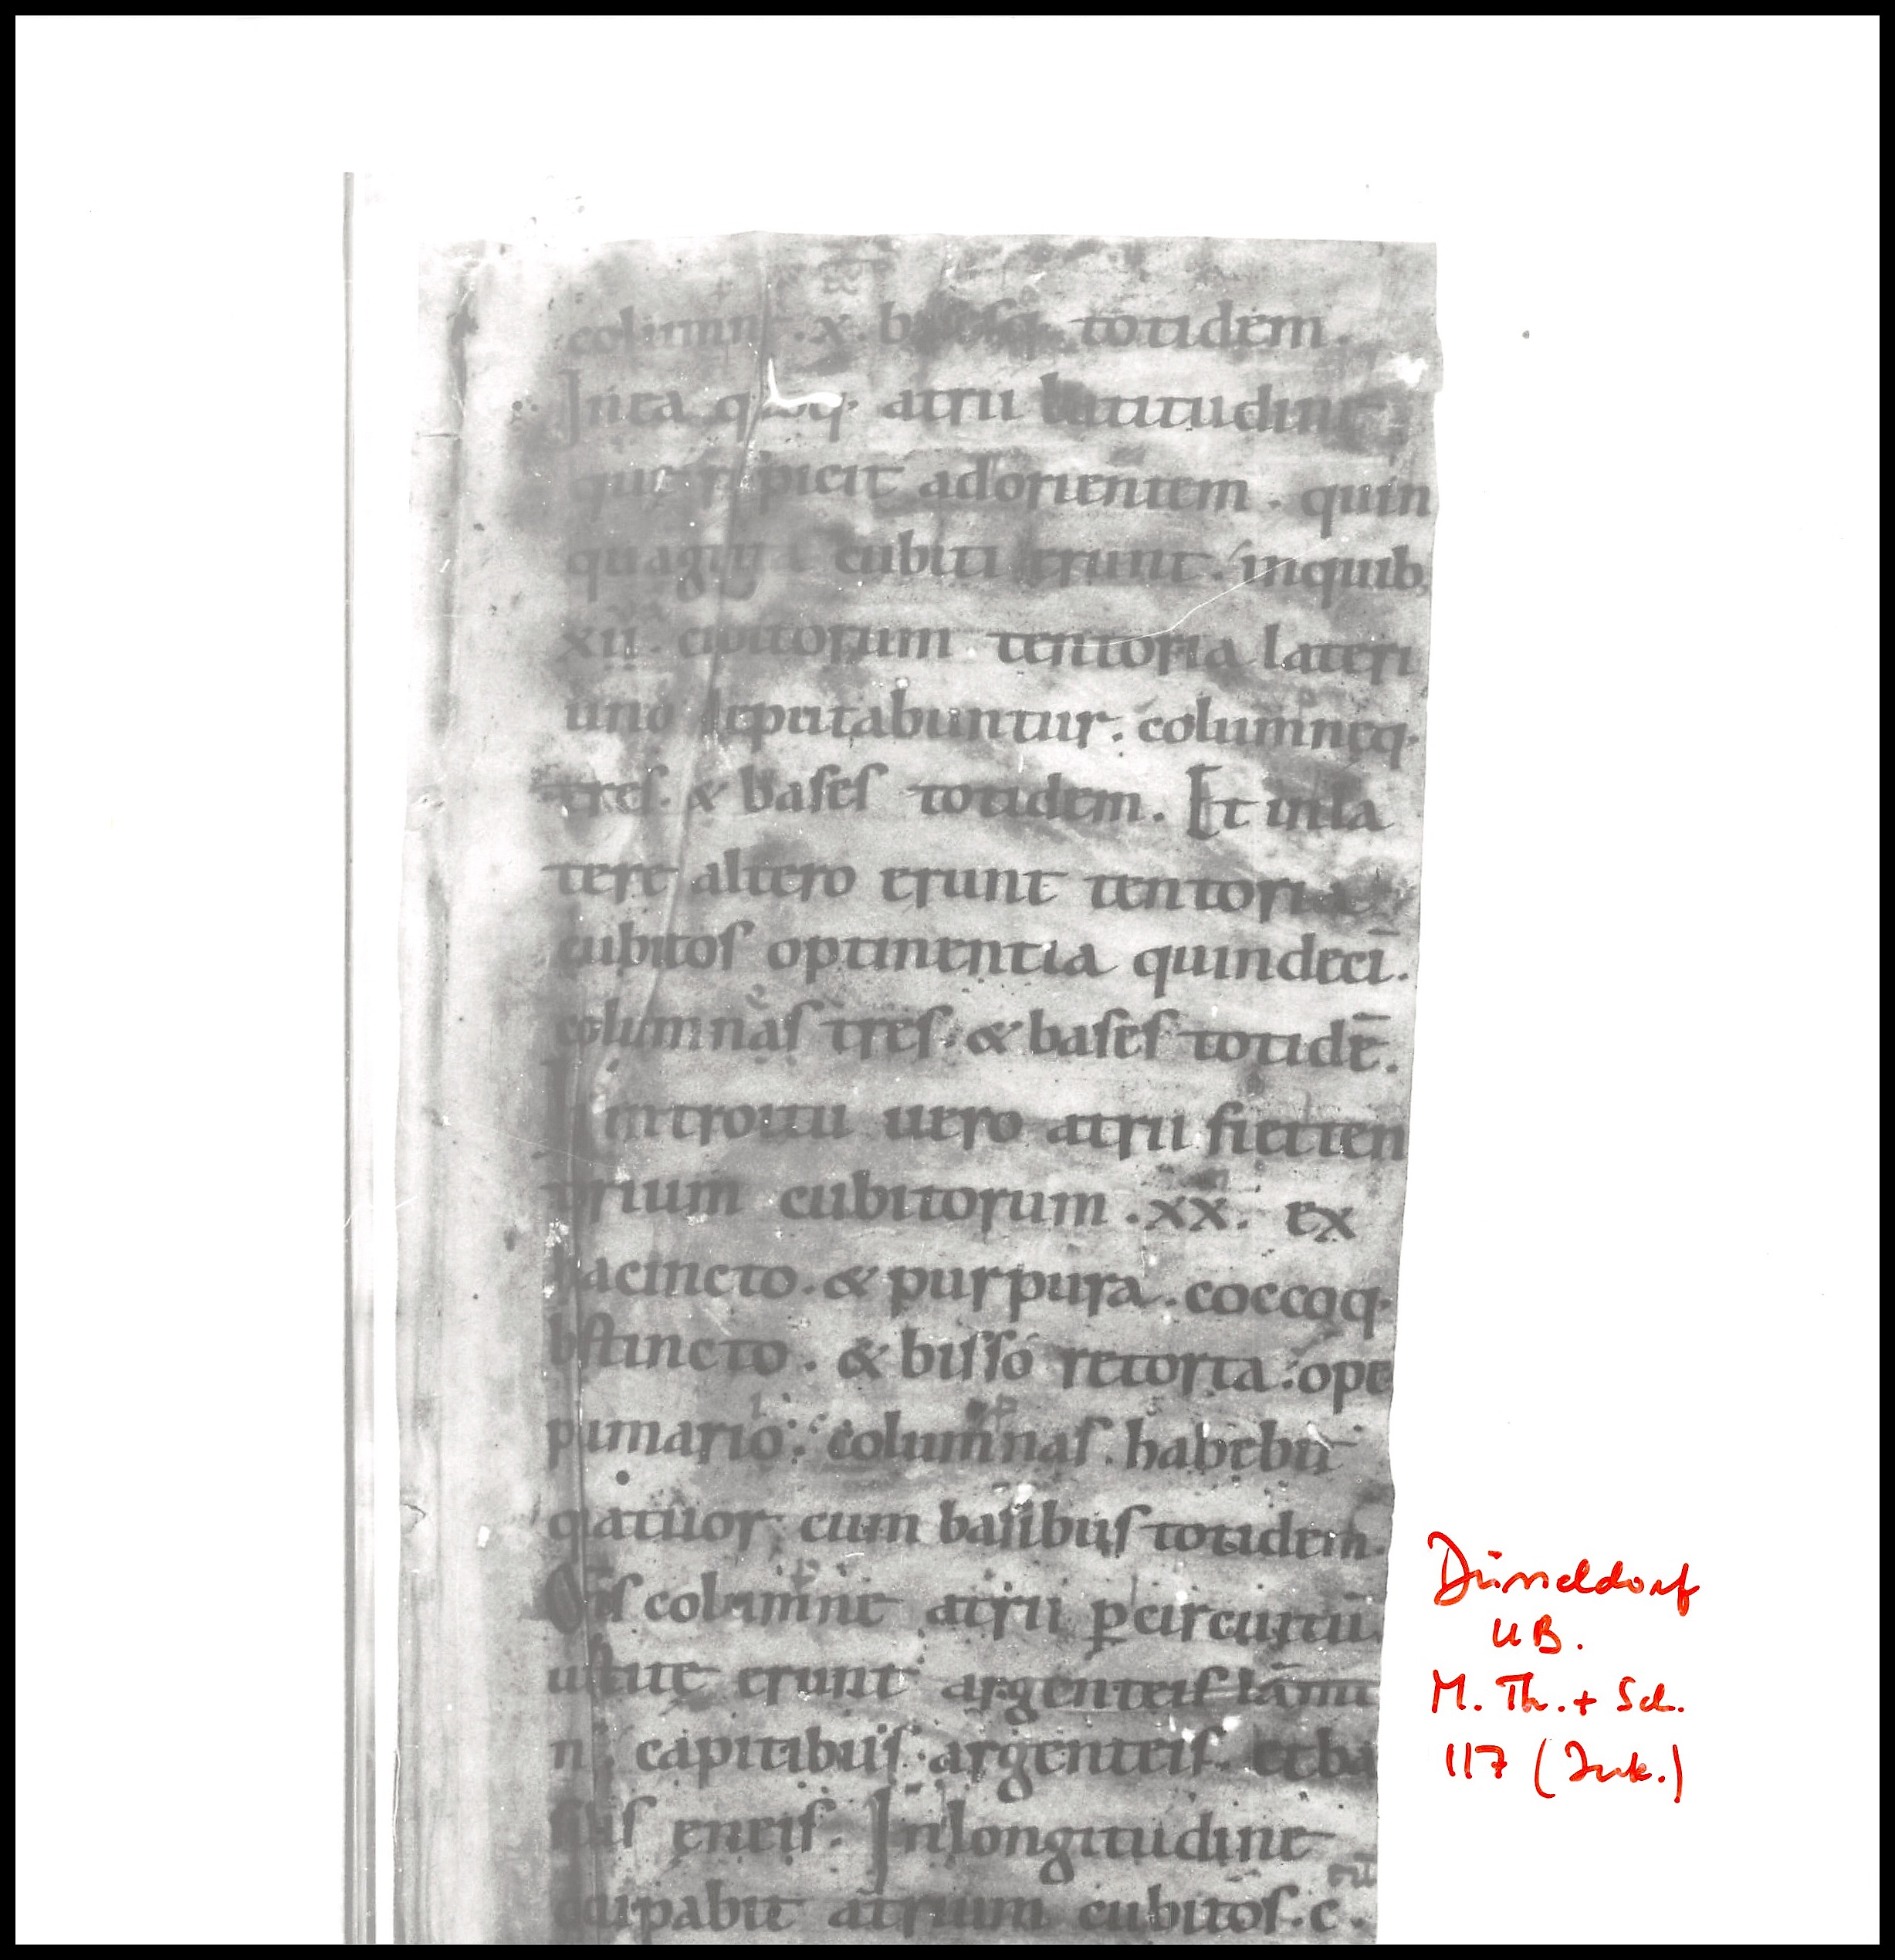 columnę .x. basesq; totidem.
In ea quoq; atrii latitudine
quę respicit adorientem. quin
quaginta cubiti erunt. inquib;
xii. cubitorum tentoria lateri
uno deputabuntur. columnęq;
tres. & bases totidem. Et inla
tere altero erunt tentoria
cubitos optinentia quindecī.
columnas tres. & bases totidē.
In introitu uero atrii fiet ten
torium cubitorum .xx. ex
hiacincto. & purpura. coccoq;
bistincto. & bisso retorta. ope
pimario. columnas. habebit
quatuor. cum basibus totidem.
Om̅s columne atrii p̲circuitū
uestitę erunt argenteis lami
nis. capitibus argenteis. et ba
sibus ęneis. In longitudine
occupabit atrium cubitos .c.
Düsseldorf
UB.
M. Th. + Sch.
117 (Ink.)